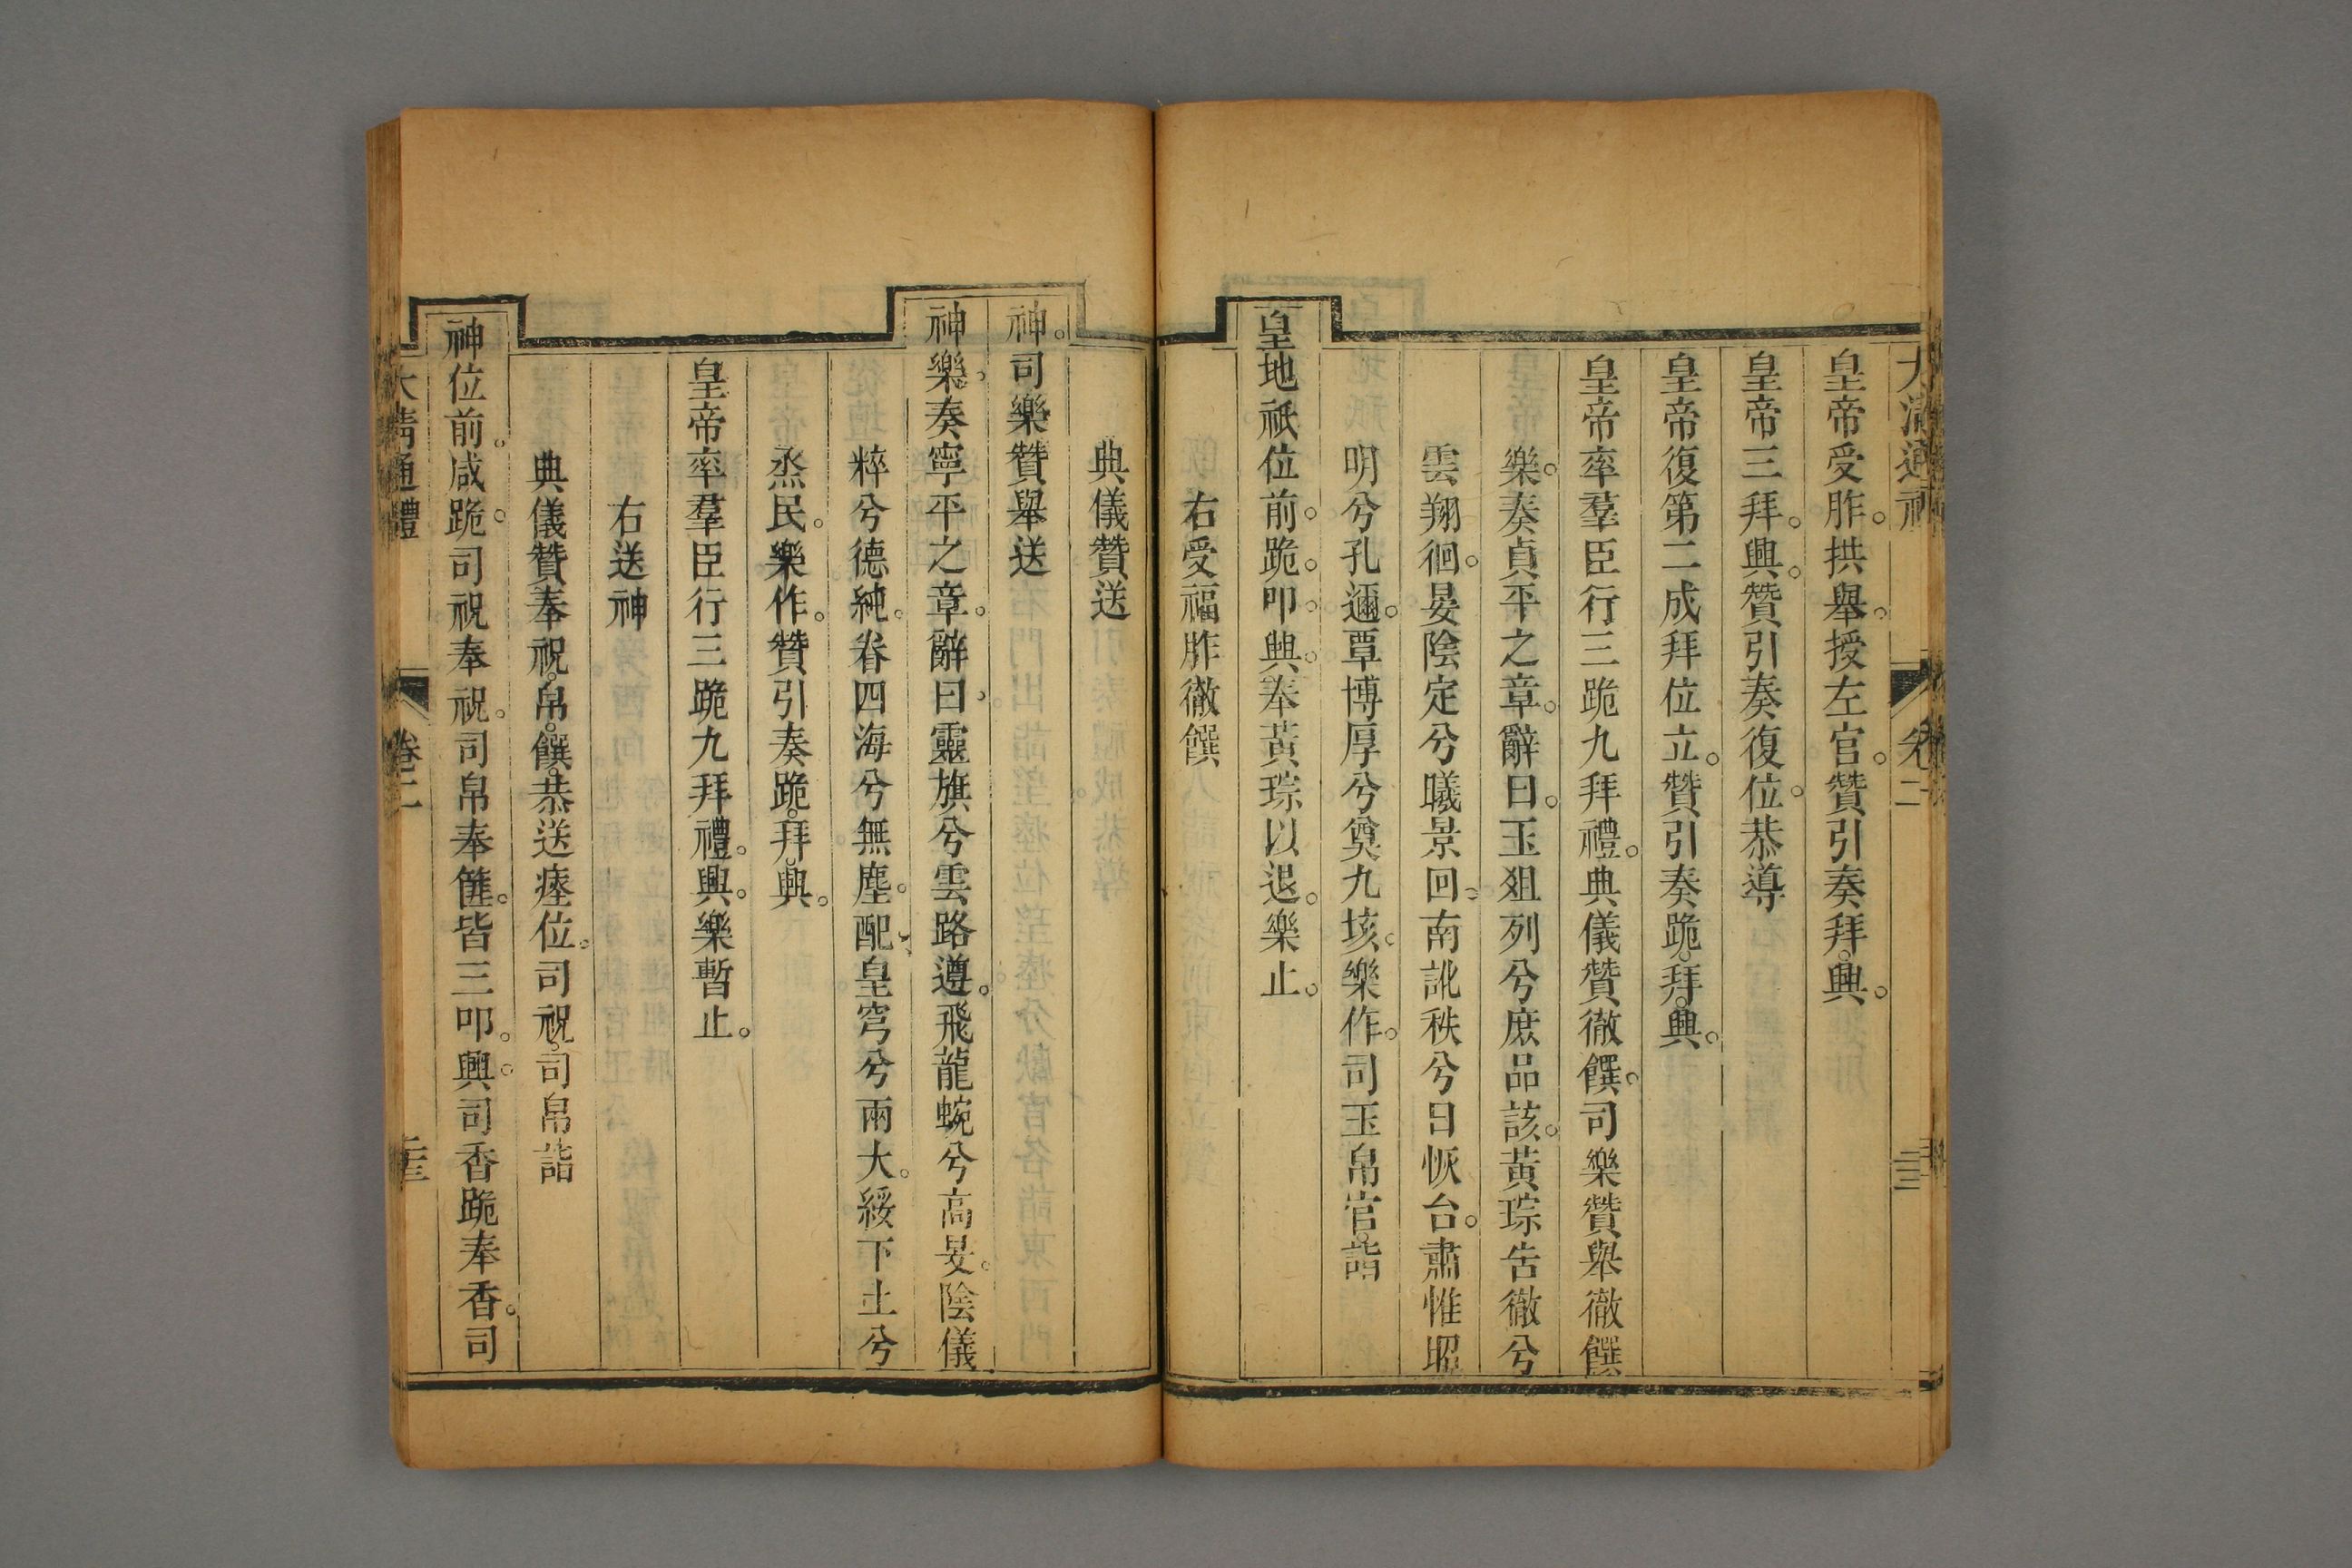 大清通禮 卷二
皇帝受胙。拱舉。授左官。贊引奏拜。興。
皇帝三拜。興。贊引奏復位。恭導
皇帝復第二成拜位立。贊引奏跪。拜。興。
皇帝率羣臣行三跪九拜禮。典儀贊徹饌。司樂贊舉徹饌
樂。奏貞平之章。辭曰。玉俎列兮庶品該。黃琮告徹兮
雲翔徊。晏陰定兮曦景回。南訛秩兮日恢台。肅惟昭
明兮孔邇。覃博厚兮奠九垓。樂作。司玉帛官。詣
皇地祇位前。跪。叩。興。奉黃琮以退。樂止。
右受福胙徹饌
典儀贊送
神。司樂贊舉送
神樂。奏寧平之章。辭曰。靈旗兮雲路遵。飛龍蜿兮高旻。陰儀
粹兮德純。眷四海兮無塵。配皇穹兮兩大。綏下土兮
烝民。樂作。贊引奏跪。拜。興。
皇帝率羣臣行三跪九拜禮。興。樂暫止。
右送神
典儀贊奉祝。帛。饌。恭送瘞位。司祝。司帛詣
神位前。咸跪。司祝奉祝。司帛奉篚。皆三叩。興。司香跪奉香。司
大清通禮 卷二